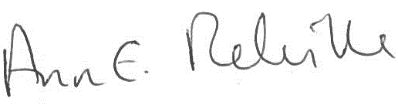 Ann E. Melville